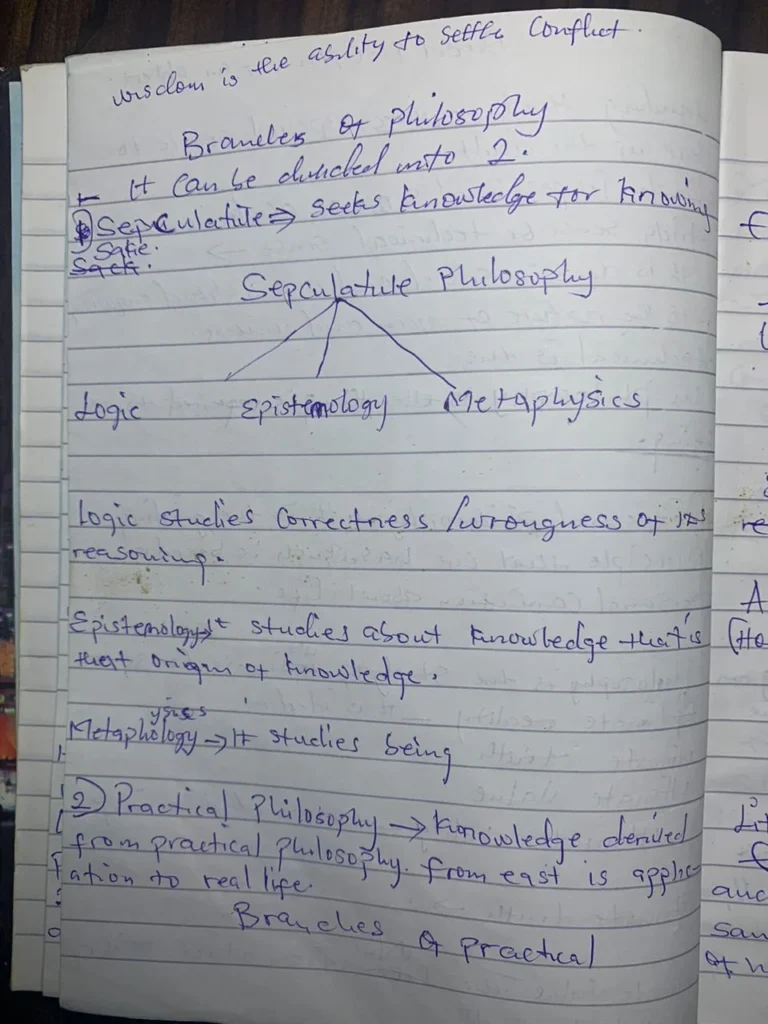 wisdom is the ability to settle Conflict.
Branches of philosophy
- It Can be divided into 2.
1) Sepculative => seeks knowledge for knowing
Sake.
Sack.
Sepculative Philosophy
Logic Epistemology Metaphysics
Logic studies Correctness /wrongness of its
reasoning.
Epistemology→It studies about knowledge that's
that origin of knowledge.
ysics
Metaphology → It studies being
2) Practical Philosophy → Knowledge derived
from practical philosophy. from east is applic-
ation to real life.
Branches of practical
re
A
(Ho
Lit
auc
San
of